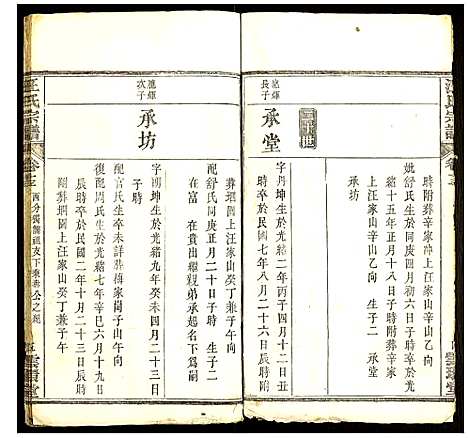 汪氏宗譜
時附葬辛家沖上汪家山辛乙向
妣舒氏生於同庚四月初六日子時卒於光
緒十五年正月十八日子時附葬辛家
上汪家山辛乙向 生子二 承堂
承坊
長子
承堂
字月坤生於光緒二年丙子四月二十日丑
時卒於民國七年八月二十六日辰時附
葬壪園上汪家山癸丁兼子午向
配舒氏同庚正月二十日子時 生子二
在富 在貴出繼親弟承起名下為嗣
次子
承坊
字開坤生於光緒九年癸未四月二十三日
子時
配官氏生卒未詳葬梅家岗子山子午向
復配周氏生於光緒七年辛巳六月十九日
辰時卒於民國二年十月二十三日辰時
附葬壪園上汪家山癸丁兼子午
汪氏宗譜
西分